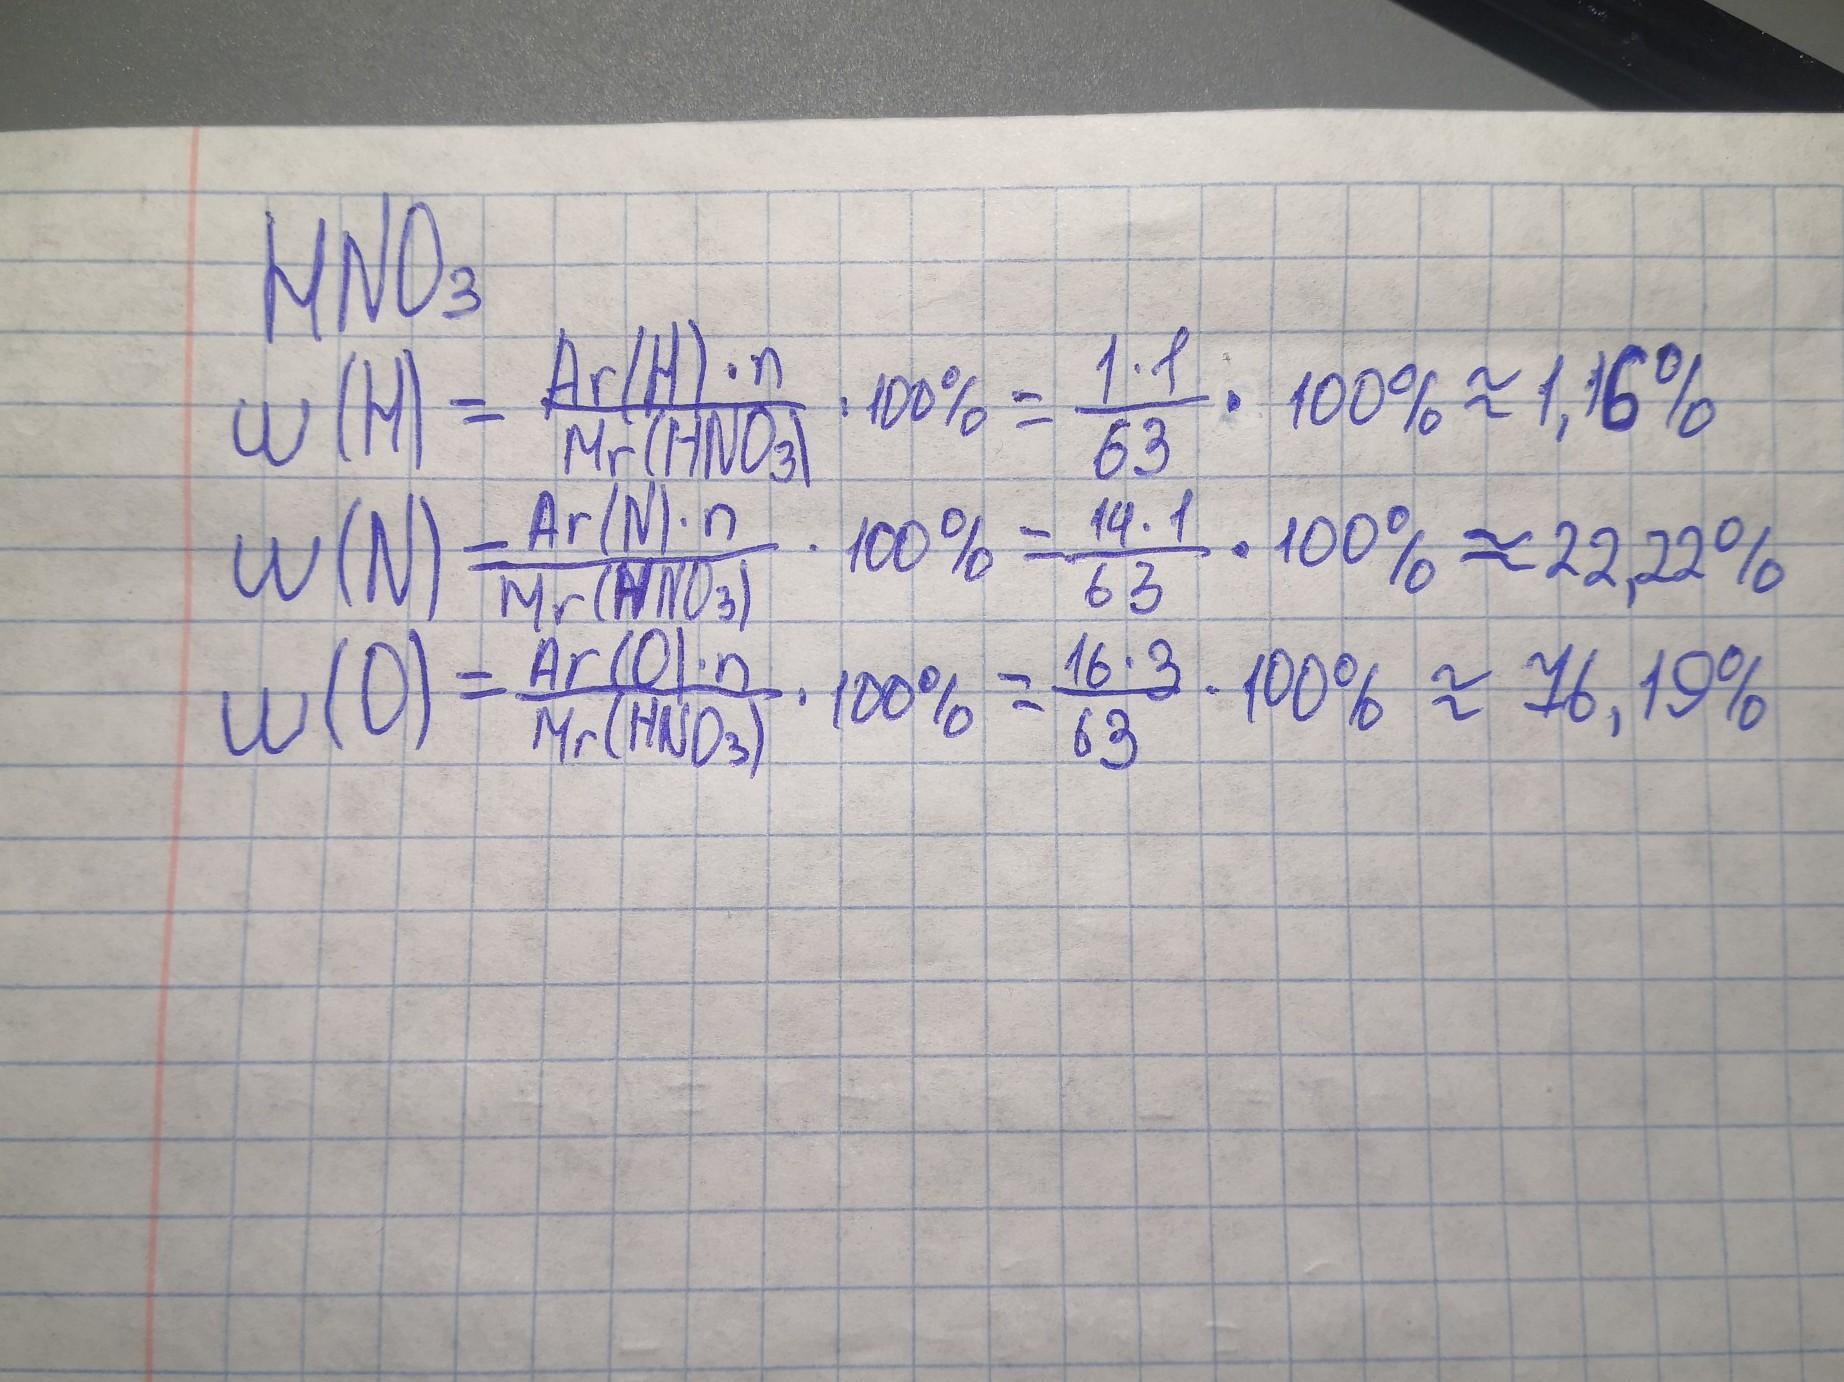 HNO₃
w(H) = Ar(H)·n / Mr(HNO₃) · 100% = 1·1 / 63 · 100% ≈ 1,16%
w(N) = Ar(N)·n / Mr(HNO₃) · 100% = 14·1 / 63 · 100% ≈ 22,22%
w(O) = Ar(O)·n / Mr(HNO₃) · 100% = 16·3 / 63 · 100% ≈ 76,19%